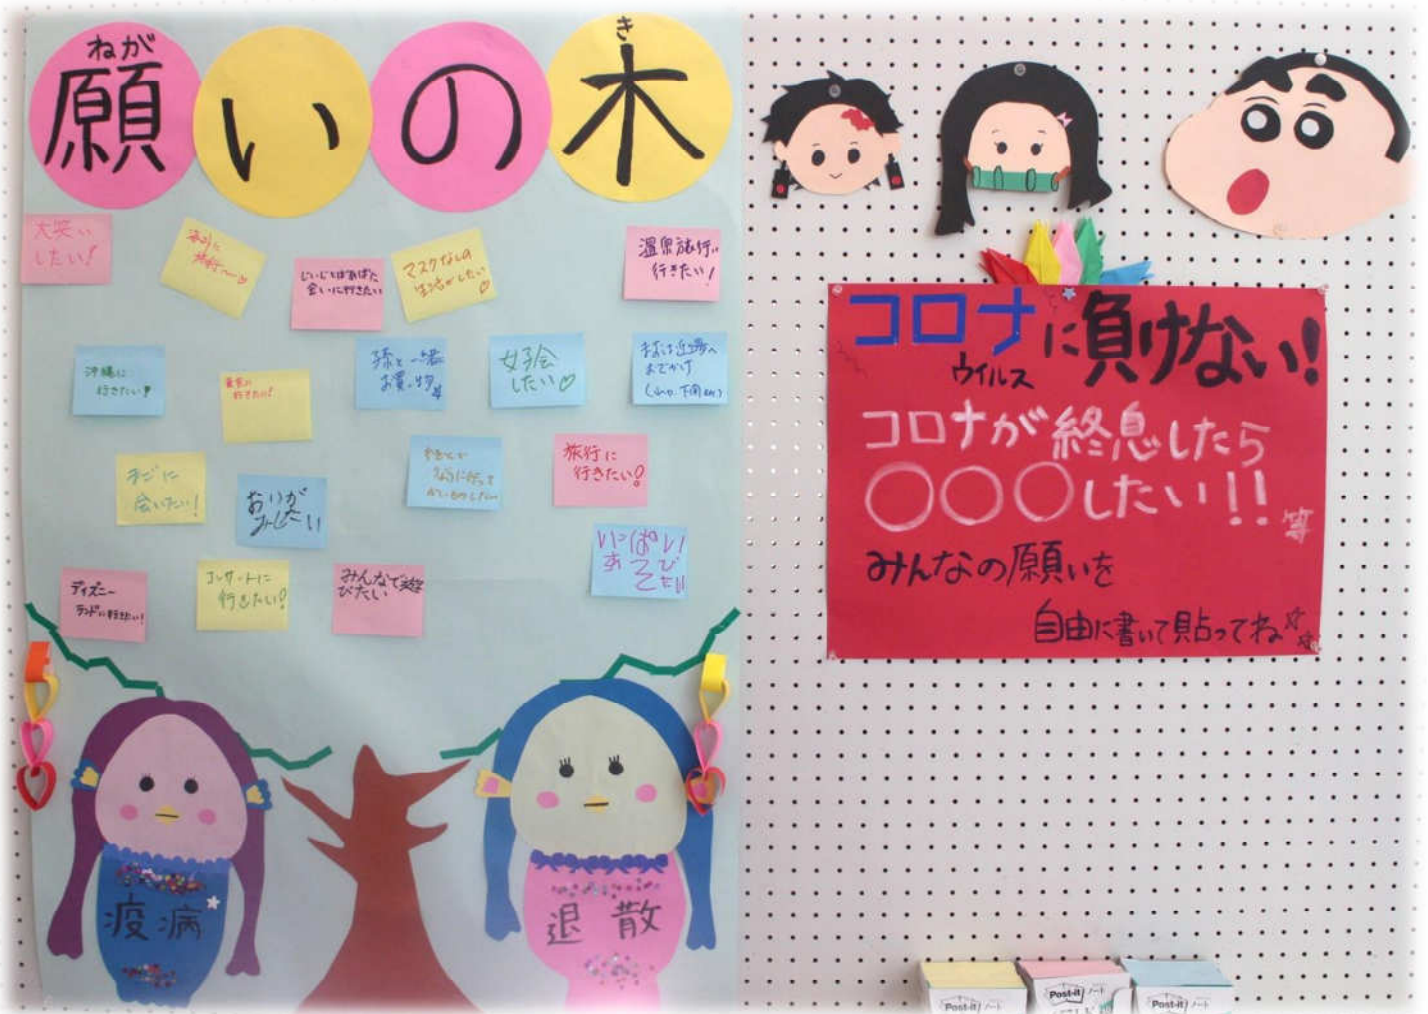 ねが
願いの木
き
大笑い
したい！
旅行
じいじとばあばに
会いに行きたい
マスクなしの
生活がしたい♡
温泉旅行に
行きたい！
沖縄に
行きたい！
東京に
行きたい！
孫と一緒
お買い物
女子会
したい♡
まずは近場へ
おでかけ
まごに
会いたい！
おいが
みしたい
旅行に
行きたい！
いっぱい
あそびたい
ディズニー
ランドに行きたい！
コンサートに
行きたい！
みんなで遊
びたい
疫病
退散
コロナに負けない！
ウイルス
コロナが終息したら
○○○したい!!
等
みんなの願いを
自由に書いて貼ってね☆☆
Post-it ノート
Post-it ノート
Post-it ノート